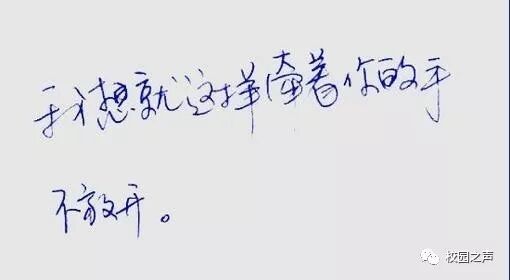 我想就这样牵着你的手
不放开。
校园之声